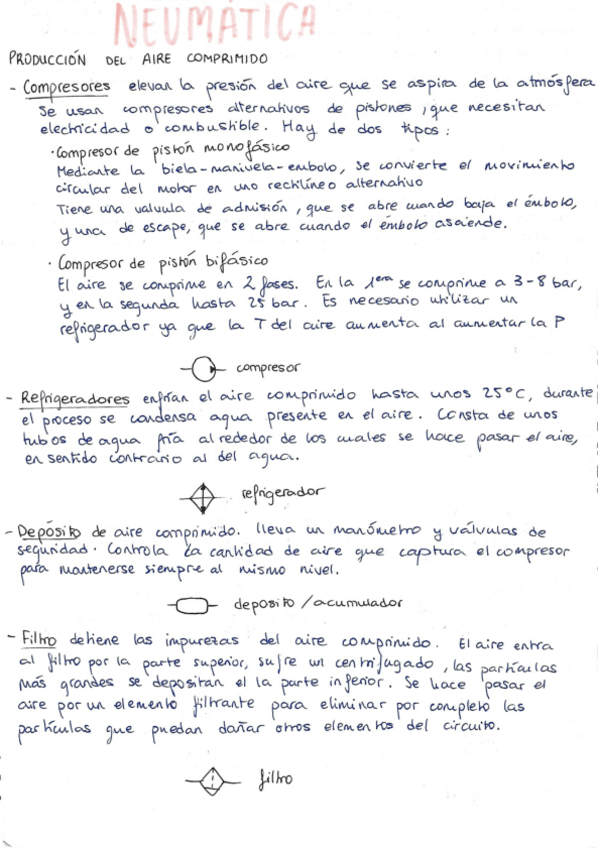 NEUMÁTICA
PRODUCCIÓN DEL AIRE COMPRIMIDO
- Compresores elevan la presión del aire que se aspira de la atmósfera
Se usan compresores alternativos de pistones, que necesitan
electricidad o combustible. Hay de dos tipos:
· Compresor de pistón monofásico
Mediante la biela-manivela-embolo, se convierte el movimiento
circular del motor en uno rectilíneo alternativo
Tiene una valvula de admisión, que se abre cuando baja el émbolo,
y una de escape, que se abre cuando el émbolo asciende.
· Compresor de pistón bifásico
El aire se comprime en 2 fases. En la 1era se comprime a 3-8 bar,
y en la segunda hasta 25 bar. Es necesario utilizar un
refrigerador ya que la T del aire aumenta al aumentar la P
compresor
- Refrigeradores enfrían el aire comprimido hasta unos 25°C, durante
el proceso se condensa agua presente en el aire. Consta de unos
tubos de agua fría alrededor de los cuales se hace pasar el aire,
en sentido contrario al del agua.
refrigerador
- Depósito de aire comprimido. lleva un manómetro y válvulas de
seguridad. Controla la cantidad de aire que captura el compresor
para mantenerse siempre al mismo nivel.
deposito / acumulador
- Filtro detiene las impurezas del aire comprimido. El aire entra
al filtro por la parte superior, sufre un centrifugado, las partículas
más grandes se depositan el la parte inferior. Se hace pasar el
aire por un elemento filtrante para eliminar por completo las
partículas que puedan dañar otros elementos del circuito.
filtro